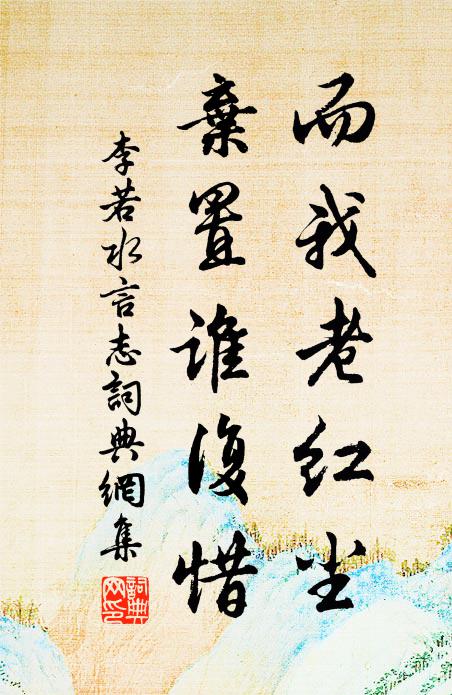 而我老红尘
棄置誰復惜
李若水言志詞典網集
詞典网印